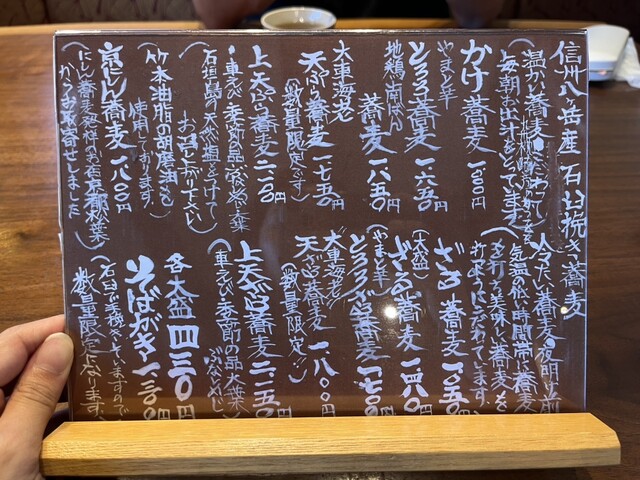 信州八ヶ岳産石臼挽き蕎麦
(温かい蕎麦こだわって
毎朝お出汁をとってます)
かけ蕎麦
やまと芋
とろろ蕎麦 一六五〇円
地鶏南ばん
蕎麦 一八五〇円
大車海老
天ぷら蕎麦 一七五〇円
(数量限定です)
上天ぷら蕎麦
・車えび・季節の品・大葉
石垣島の天然塩をつけて
お召し上がり下さい
竹本油脂の胡麻油を
使用しております。
京にしん蕎麦 一八〇〇円
(にしん蕎麦発祥のお店京都松葉
からお取寄せしました)
冷たい蕎麦・夜明け前
気温の低い時間帯に蕎麦
を打ち美味しい蕎麦を
打つようにこだわってます
ざる蕎麦 一〇五〇円
(大盛)
ざる蕎麦 一四八〇円
(やまと芋)
とろろざる蕎麦 一七〇〇円
大車海老
天ざる蕎麦 一八〇〇円
(数量限定)
上天ざる蕎麦 二一五〇円
(車えび・季節の品 大葉
各大盛 四三〇円
そばがき 一三〇〇円
(石臼で手挽きしていますので
数量限定になります。)